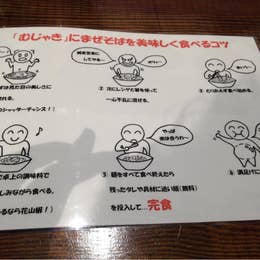 「むじゃき」にまぜそばを美味しく食べるコツ
まずは見た目の美しさに
れる。
のシャッターチャンス！）
② 次にレンゲと箸を使って
一心不乱に混ぜる。
③ とりあえず食べ始める。
で卓上の調味料で
しみながら食べる。
るなら花山椒！）
やっぱ
米は合うわ〜
⑤ 麺をすべて食べ終えたら
残ったタレや具材に追い飯（無料）
を投入して…完食
⑥ 満足げに